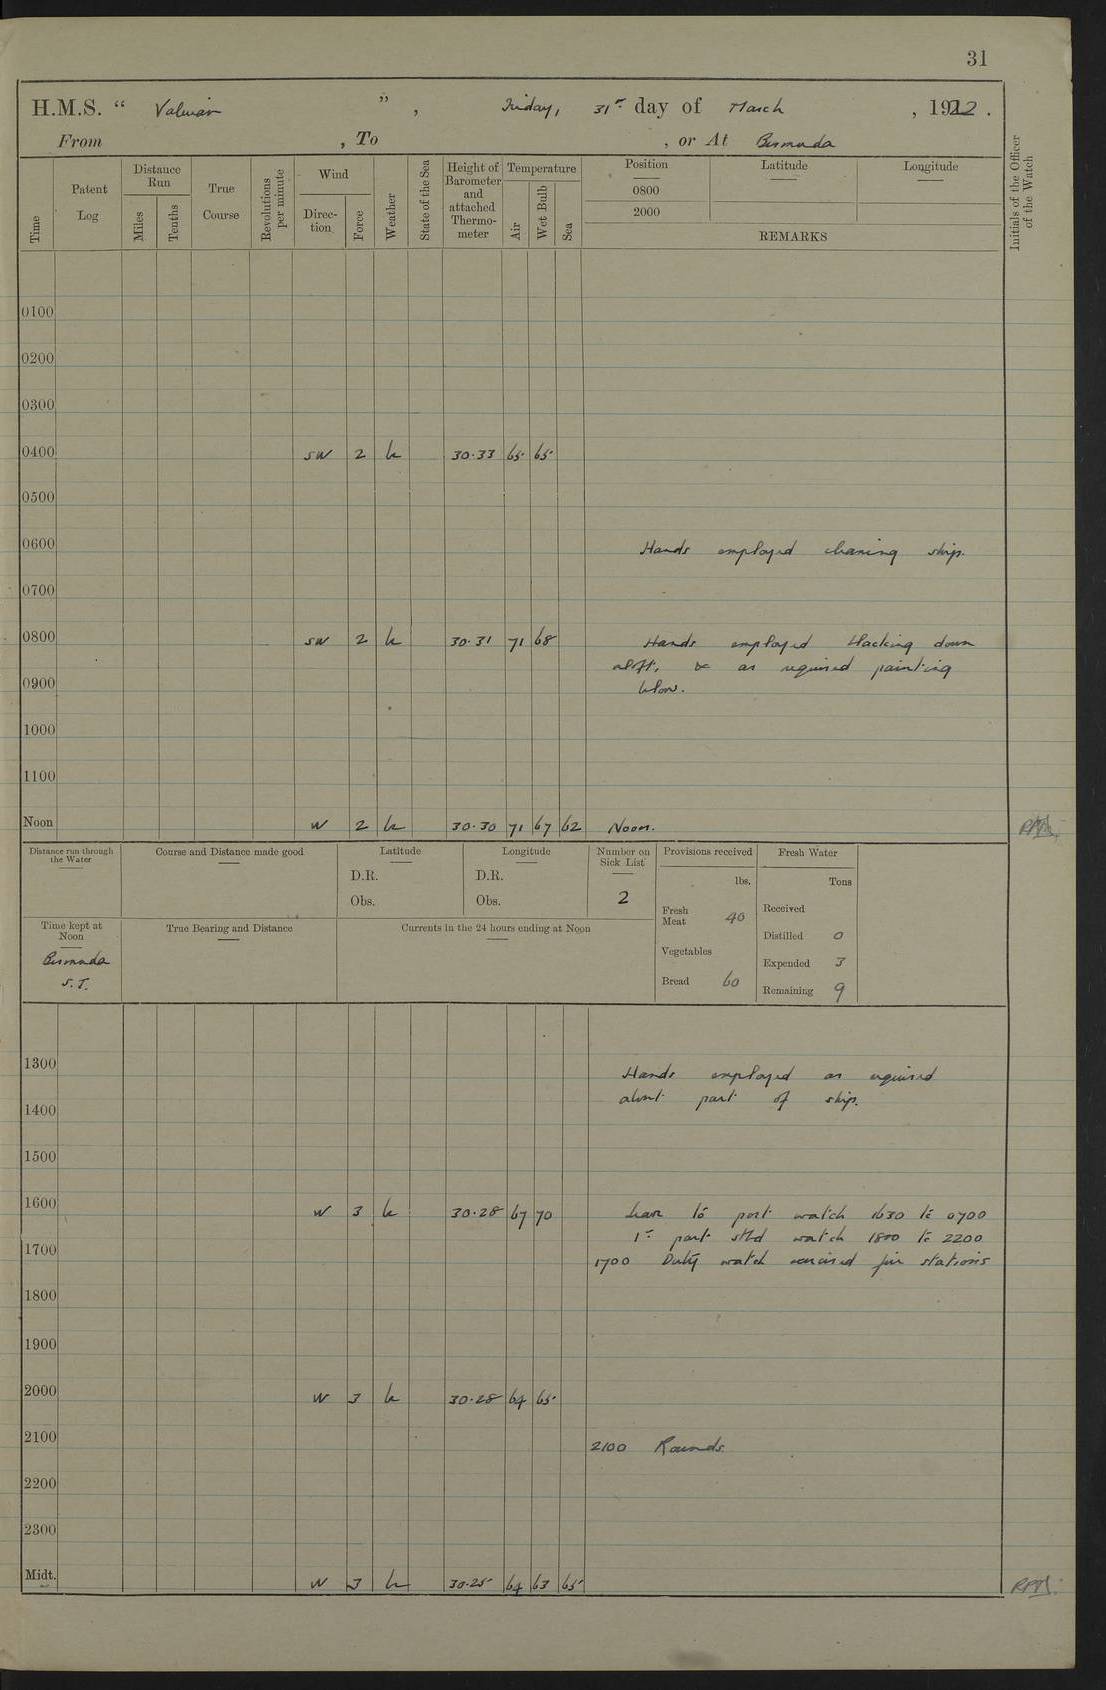 31
H.M.S. “ Valerian ” , Friday, 31st day of March , 1922 .
From , To , or At Bermuda
Time
Patent Log
Distance Run
Miles
Tenths
True Course
Revolutions per minute
Wind
Direction
Force
Weather
State of the Sea
Height of Barometer and attached Thermometer
Temperature
Air
Wet Bulb
Sea
Position Latitude Longitude
0800
2000
REMARKS
Initials of the Officer of the Watch
0100
0200
0300
0400 SW 2 b 30·33 65 65
0500
0600 Hands employed cleaning ship.
0700
0800 SW 2 b 30·31 71 68 Hands employed blacking down
aloft, & as required painting
0900 below.
1000
1100
Noon W 2 b 30·30 71 67 62 Noon.
Distance run through the Water
Course and Distance made good
Latitude
D.R.
Obs.
Longitude
D.R.
Obs.
Number on Sick List
2
Provisions received
lbs.
Fresh Meat 40
Vegetables
Bread 60
Fresh Water
Tons
Received
Distilled 0
Expended 3
Remaining 9
Time kept at Noon
Bermuda
S.T.
True Bearing and Distance
Currents in the 24 hours ending at Noon
1300 Hands employed as required
1400 about part of ship.
1500
1600 W 3 b 30·28 67 70 Leave to port watch 1630 to 0700
1st part stbd watch 1800 to 2200
1700 1700 Duty watch exercised fire stations
1800
1900
2000 W 3 b 30·28 64 65
2100 2100 Rounds.
2200
2300
Midt. W 3 b 30·25 64 63 65